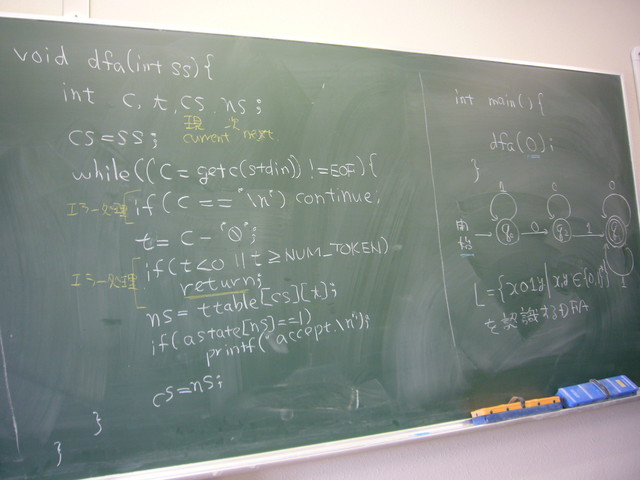 void dfa(int ss){
int c, t, cs, ns;
現 次
current next
cs=ss;
while((c=getc(stdin))!=EOF){
エラー処理 if(c=="\n") continue;
t=c-"0";
エラー処理 if(t<0 || t≥NUM_TOKEN)
return;
ns=ttable[cs][t];
if(astate[ns]==1)
printf("accept.\n");
cs=ns;
}
}
int main(){
dfa(0);
}
開始
1 0 0
q₀ 0 q₁ 1
1
L={x01y|x,y∈{0,1}*}
を認識するDFA